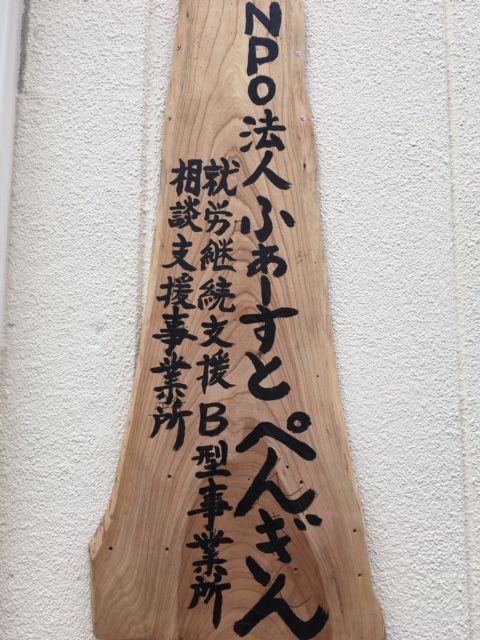 NPO法人ふぁーすとぺんぎん
就労継続支援B型事業所
相談支援事業所